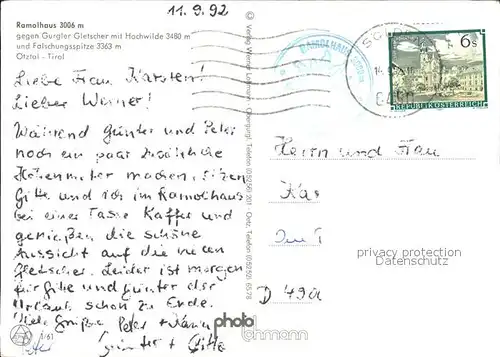 11.9.92
Ramolhaus 3006 m
gegen Gurgler Gletscher mit Hochwilde 3480 m
und Falschungsspitze 3363 m
Ötztal – Tirol
Liebe Frau Karsten!
Lieber Werner!
Während Günter und Peter
noch ein paar zusätzliche
Höhenmeter machen, sitzen
Gitte und ich im Ramolhaus
bei einer Tasse Kaffee und
genießen die schöne
Aussicht auf die vielen
Gletscher. Leider ist morgen
für Gitte und Günter der
Urlaub schon zu Ende.
Viele Grüße Peter +
Günter + Gitte
1/61
RAMOLHAUS
6 S
REPUBLIK ÖSTERREICH
Herrn und Frau
Ka
D 490
privacy protection
Datenschutz
photo
lohmann